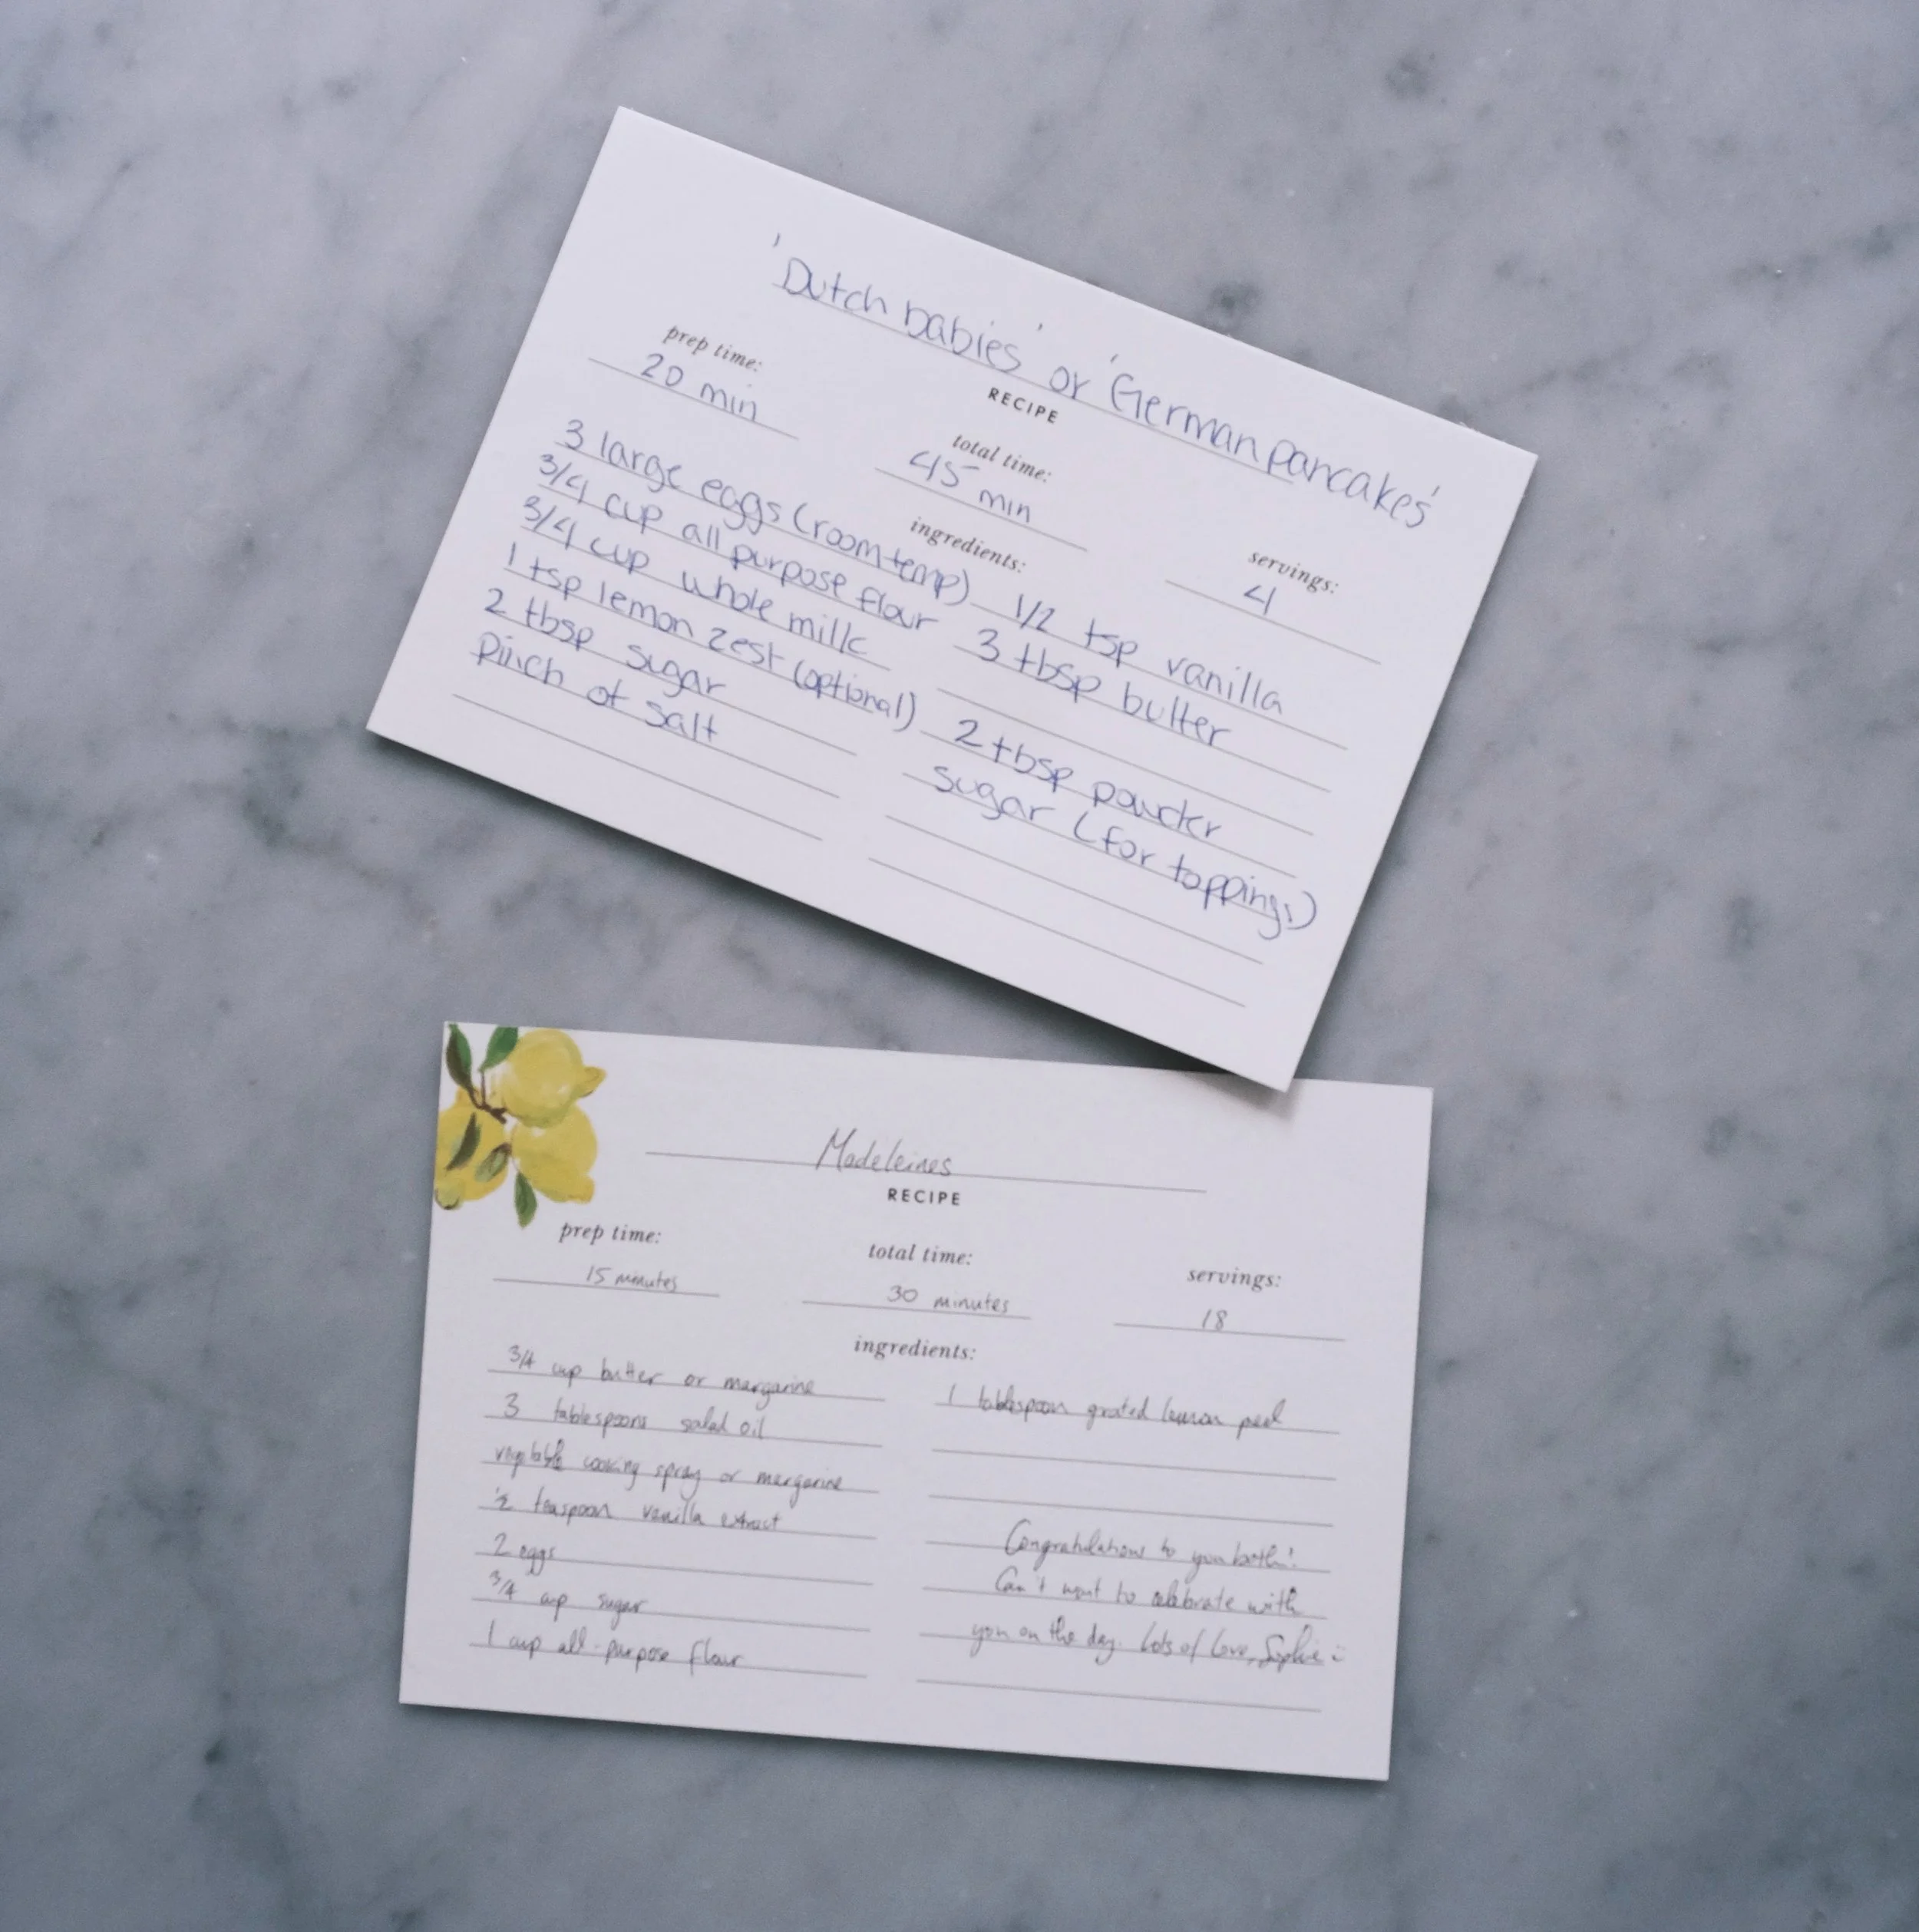 'Dutch babies' or 'German pancakes'
RECIPE
prep time:
20 min
total time:
45 min
servings:
4
ingredients:
3 large eggs (room temp)
3/4 cup all purpose flour
3/4 cup whole milk
1 tsp lemon zest (optional)
2 tbsp sugar
Pinch of salt
1/2 tsp vanilla
3 tbsp butter
2 tbsp powder
sugar (for toppings)
Madeleines
RECIPE
prep time:
15 minutes
total time:
30 minutes
servings:
18
ingredients:
3/4 cup butter or margarine
3 tablespoons salad oil
vegetable cooking spray or margarine
1/2 teaspoon vanilla extract
2 eggs
3/4 cup sugar
1 cup all-purpose flour
1 tablespoon grated lemon peel
Congratulations to you both!
Can't wait to celebrate with
you on the day. Lots of love, Sophie :)